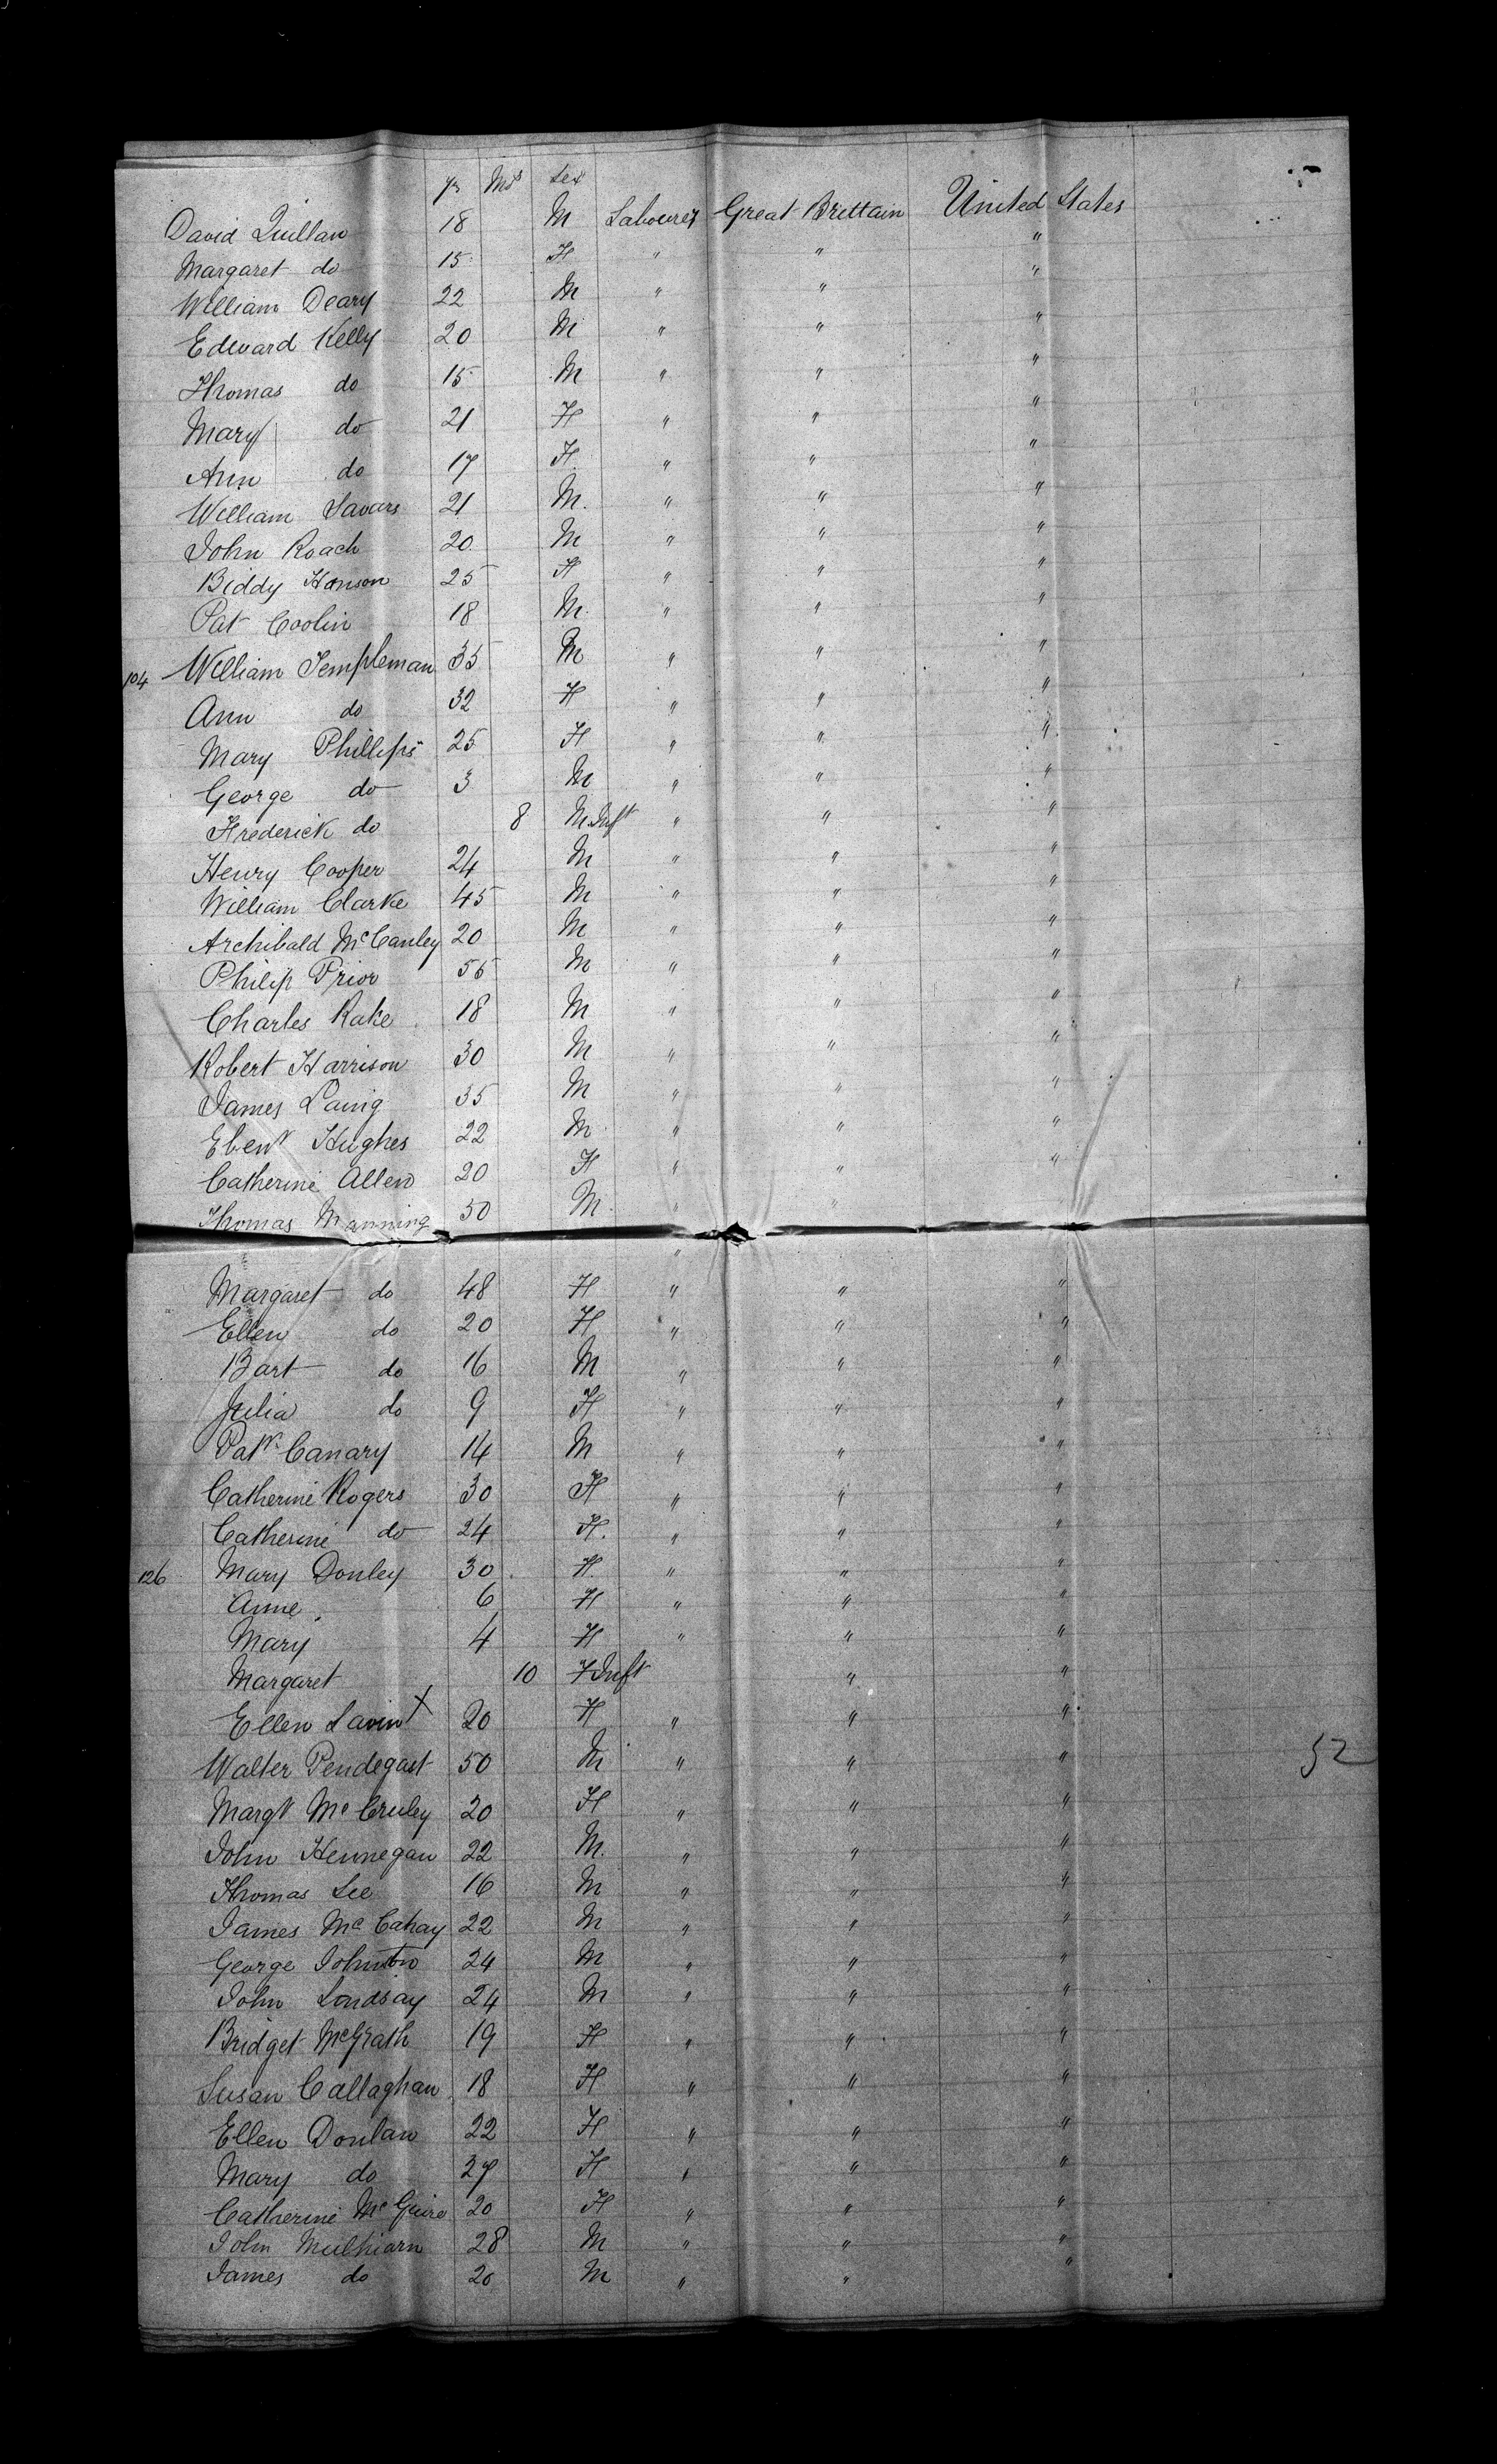 Yrs Mos Sex
David Quillan 18 M Labourer Great Brittain United States
Margaret do 15 F " " "
William Deary 22 M " " "
Edward Kelly 20 M " " "
Thomas do 15 M " " "
Mary do 21 F " " "
Ann do 17 F " " "
William Savars 21 M " " "
John Roach 20 M " " "
Biddy Hanson 25 F " " "
Pat Coolin 18 M " " "
104 William Templeman 35 M " " "
Ann do 32 F " " "
Mary Phillips 25 F " " "
George do 3 M " " "
Frederick do 8 M Inft " " "
Henry Cooper 24 M " " "
William Clarke 45 M " " "
Archibald McCanley 20 M " " "
Philip Prior 55 M " " "
Charles Rake 18 M " " "
Robert Harrison 30 M " " "
James Laing 35 M " " "
Ebenr Hughes 22 M " " "
Catherine Allen 20 F " " "
Thomas Manning 50 M " "
Margaret do 48 F " " "
Ellen do 20 F " " "
Bart do 16 M " " "
Julia do 9 F " " "
Patk Canary 14 M " " "
Catherine Rogers 30 F " " "
Catherine do 24 F " " "
126 Mary Donley 30 F " " "
Anne 6 F " " "
Mary 4 F " " "
Margaret 10 F Inft " "
Ellen Lavin X 20 F " " "
Walter Pendegast 50 M " " " 52
Margt McCruley 20 F " " "
John Hennegan 22 M " " "
Thomas Lee 16 M " " "
James McCahay 22 M " " "
George Johnston 24 M " " "
John Lindsay 24 M " " "
Bridget McGrath 19 F " " "
Susan Callaghan 18 F " " "
Ellen Donlan 22 F " " "
Mary do 27 F " " "
Catherine McGuire 20 F " " "
John Mulhiarn 28 M " " "
James do 20 M " " "